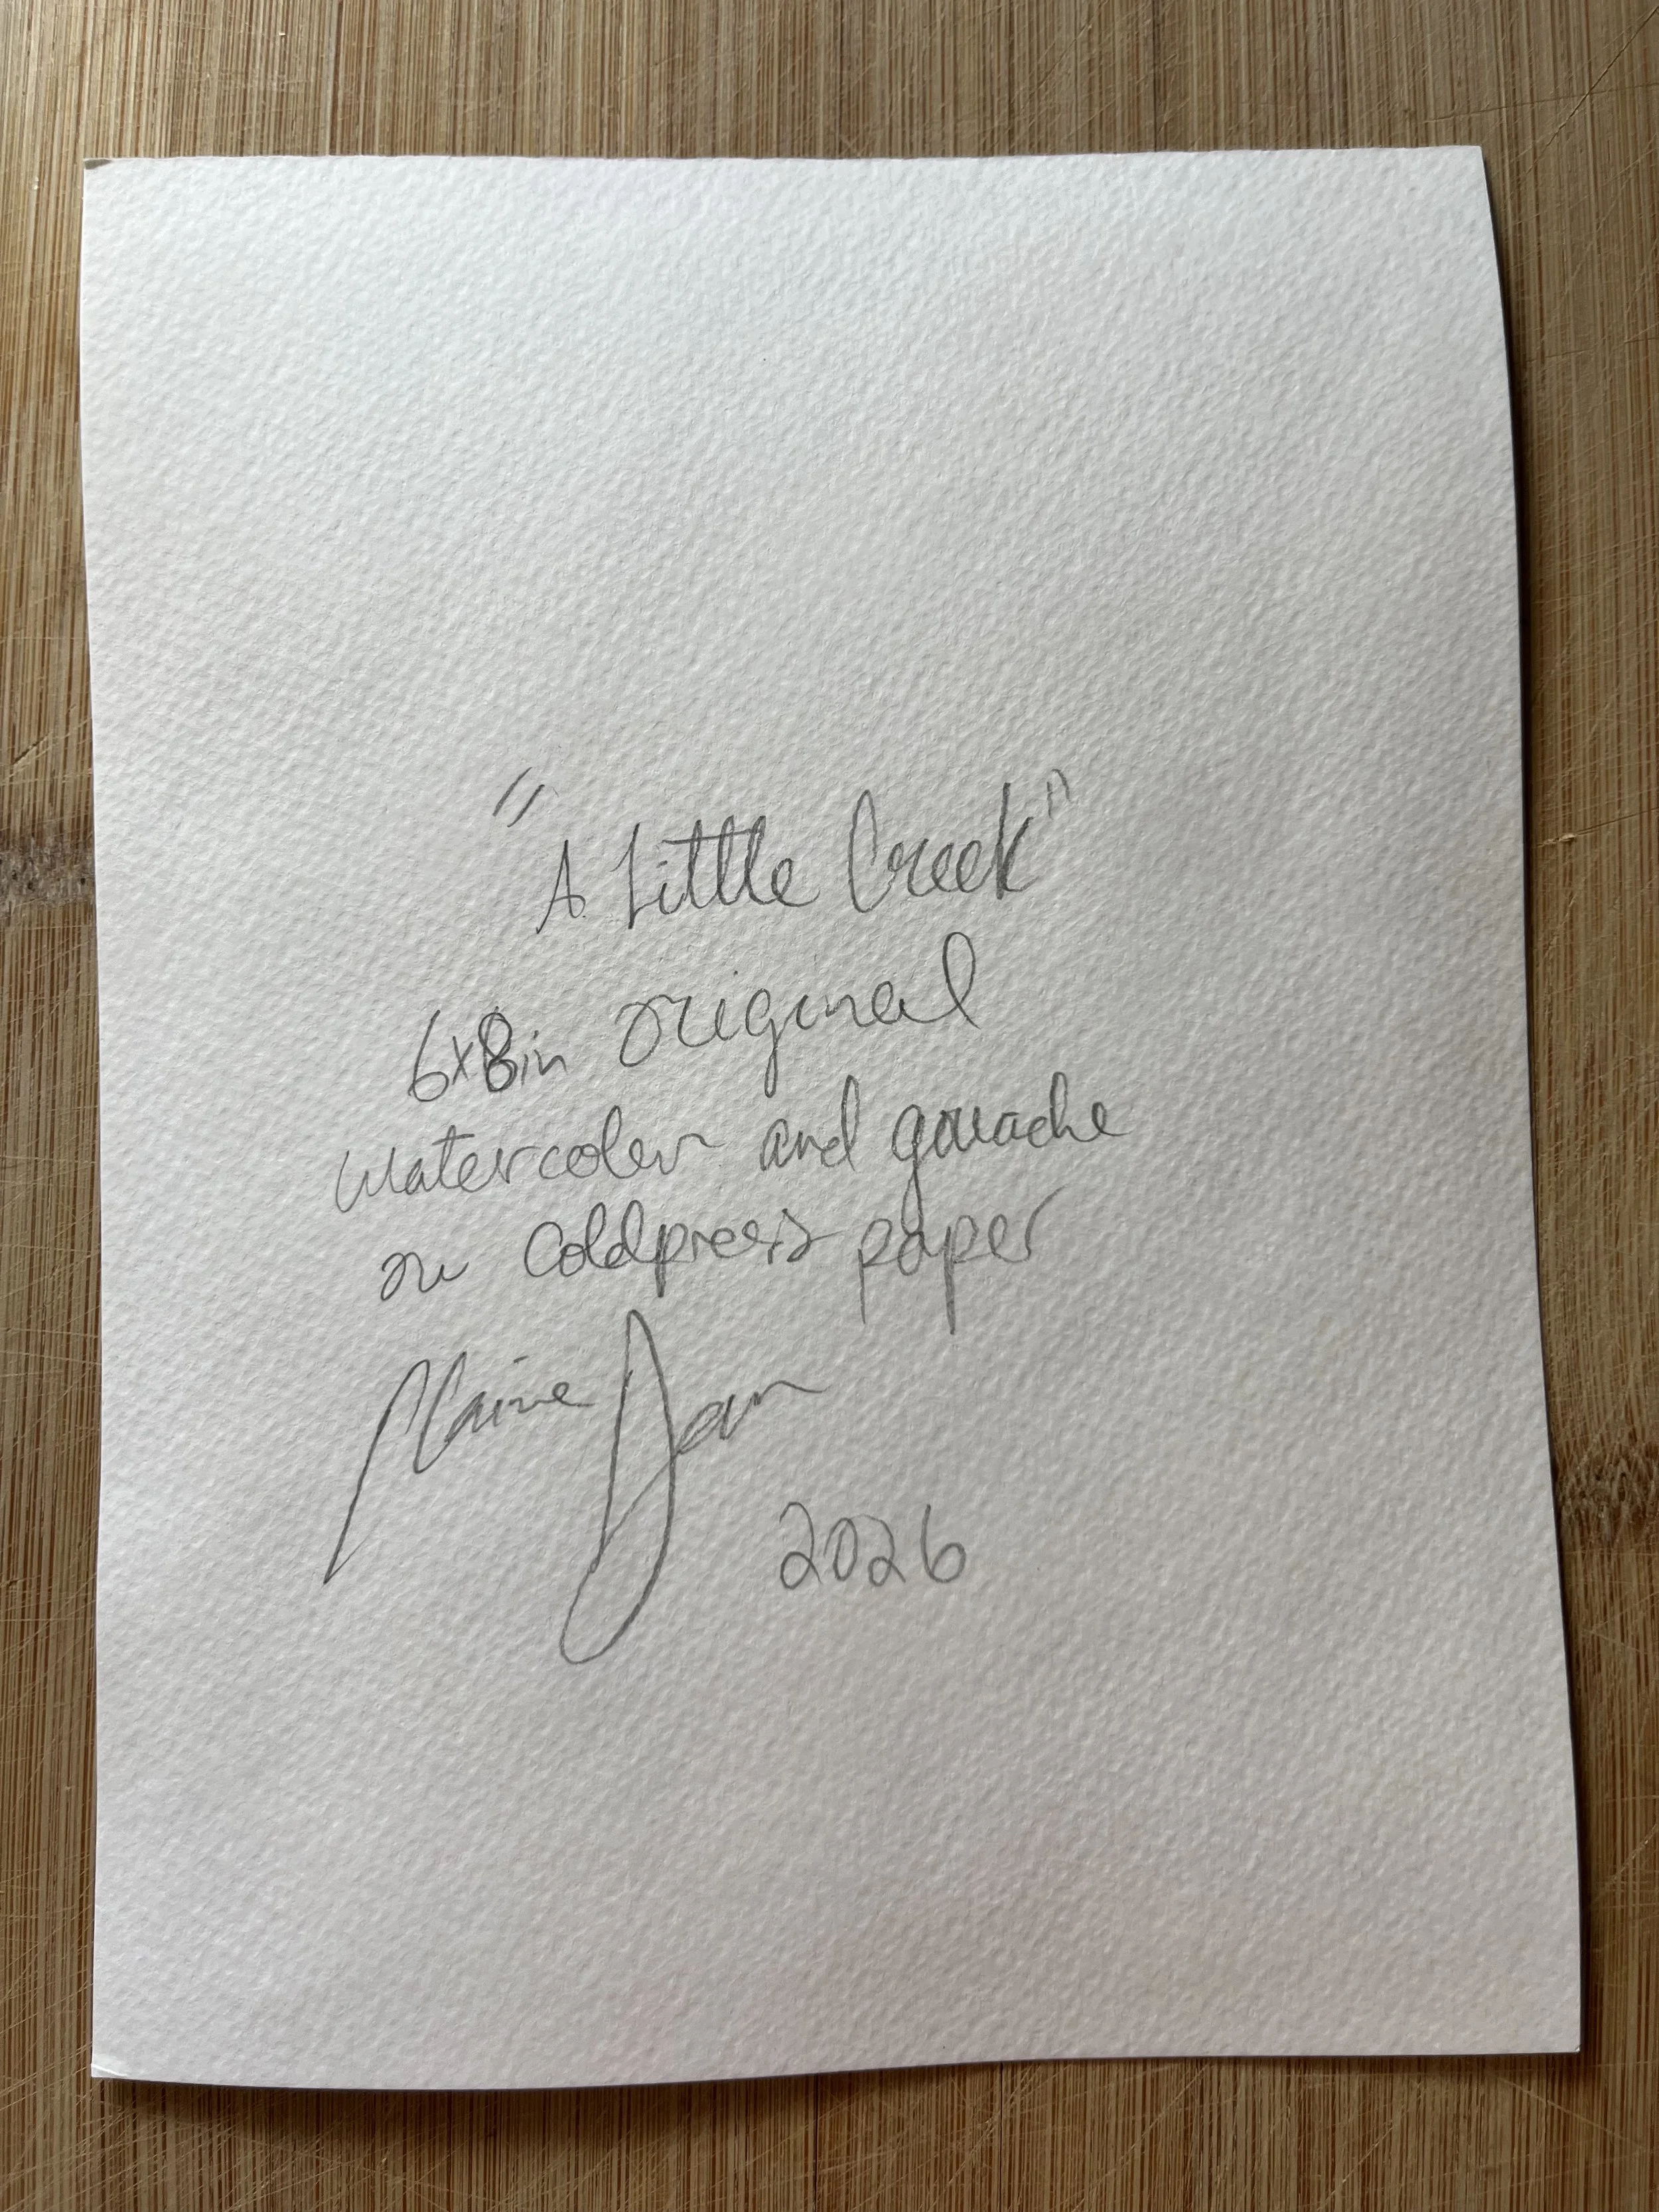 "A Little Creek"
6x8in original
watercolor and gouache
on Coldpress paper
2026